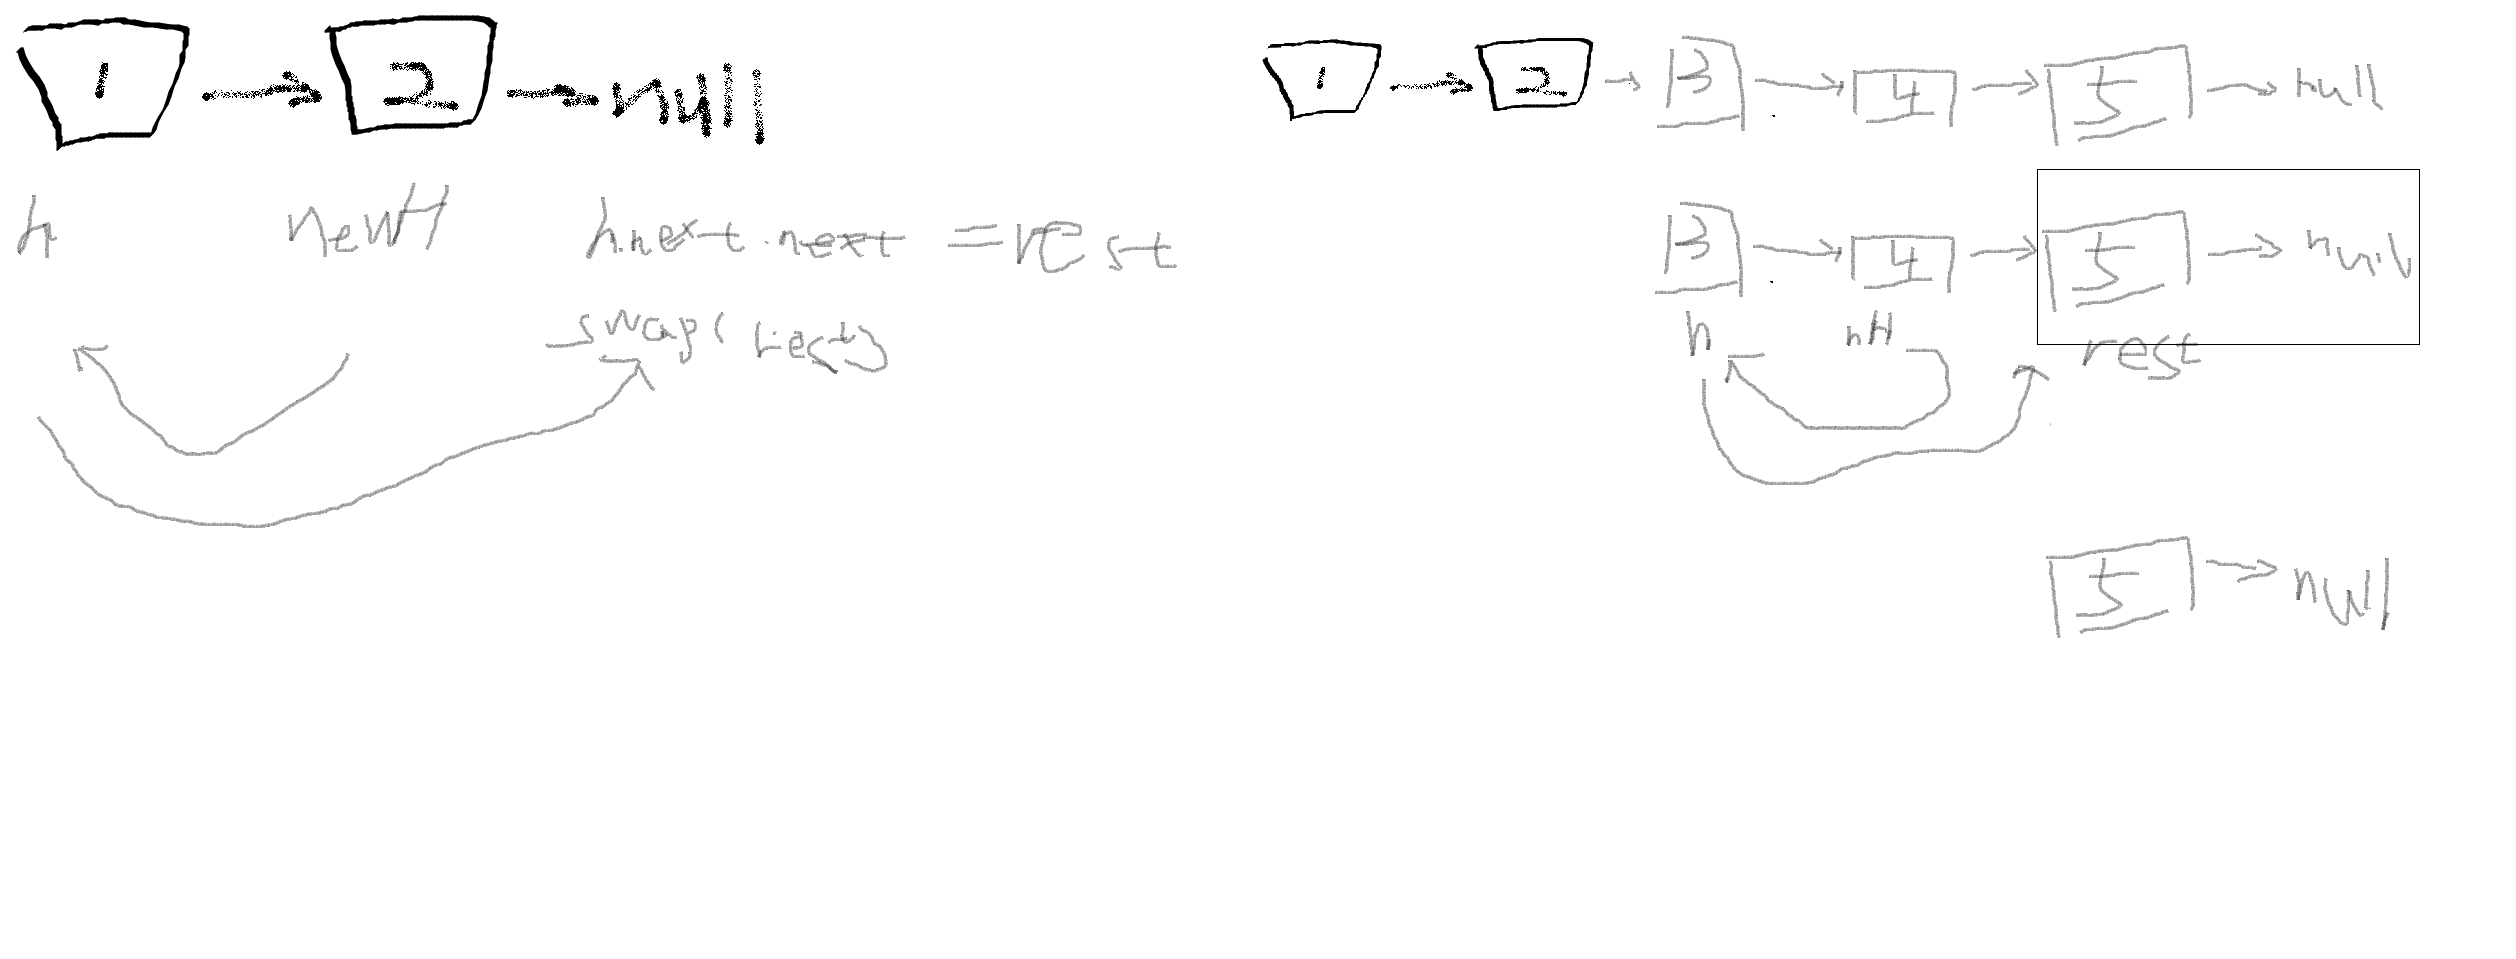 1 → 2 → null
h newH h.next.next = rest
swap(rest)
1 → 2 → 3 → 4 → 5 → null
3 → 4 → 5 → null
h nH rest
5 → null